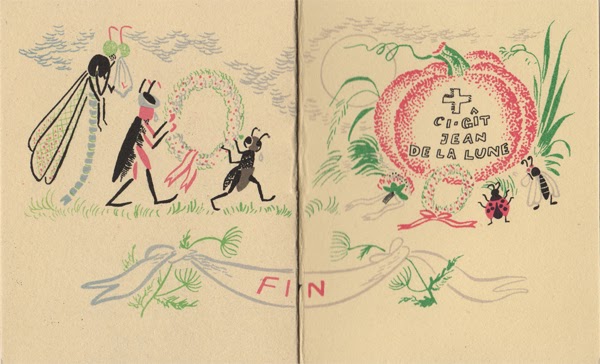 CI-GÎT
JEAN
DE LA LUNE
FIN